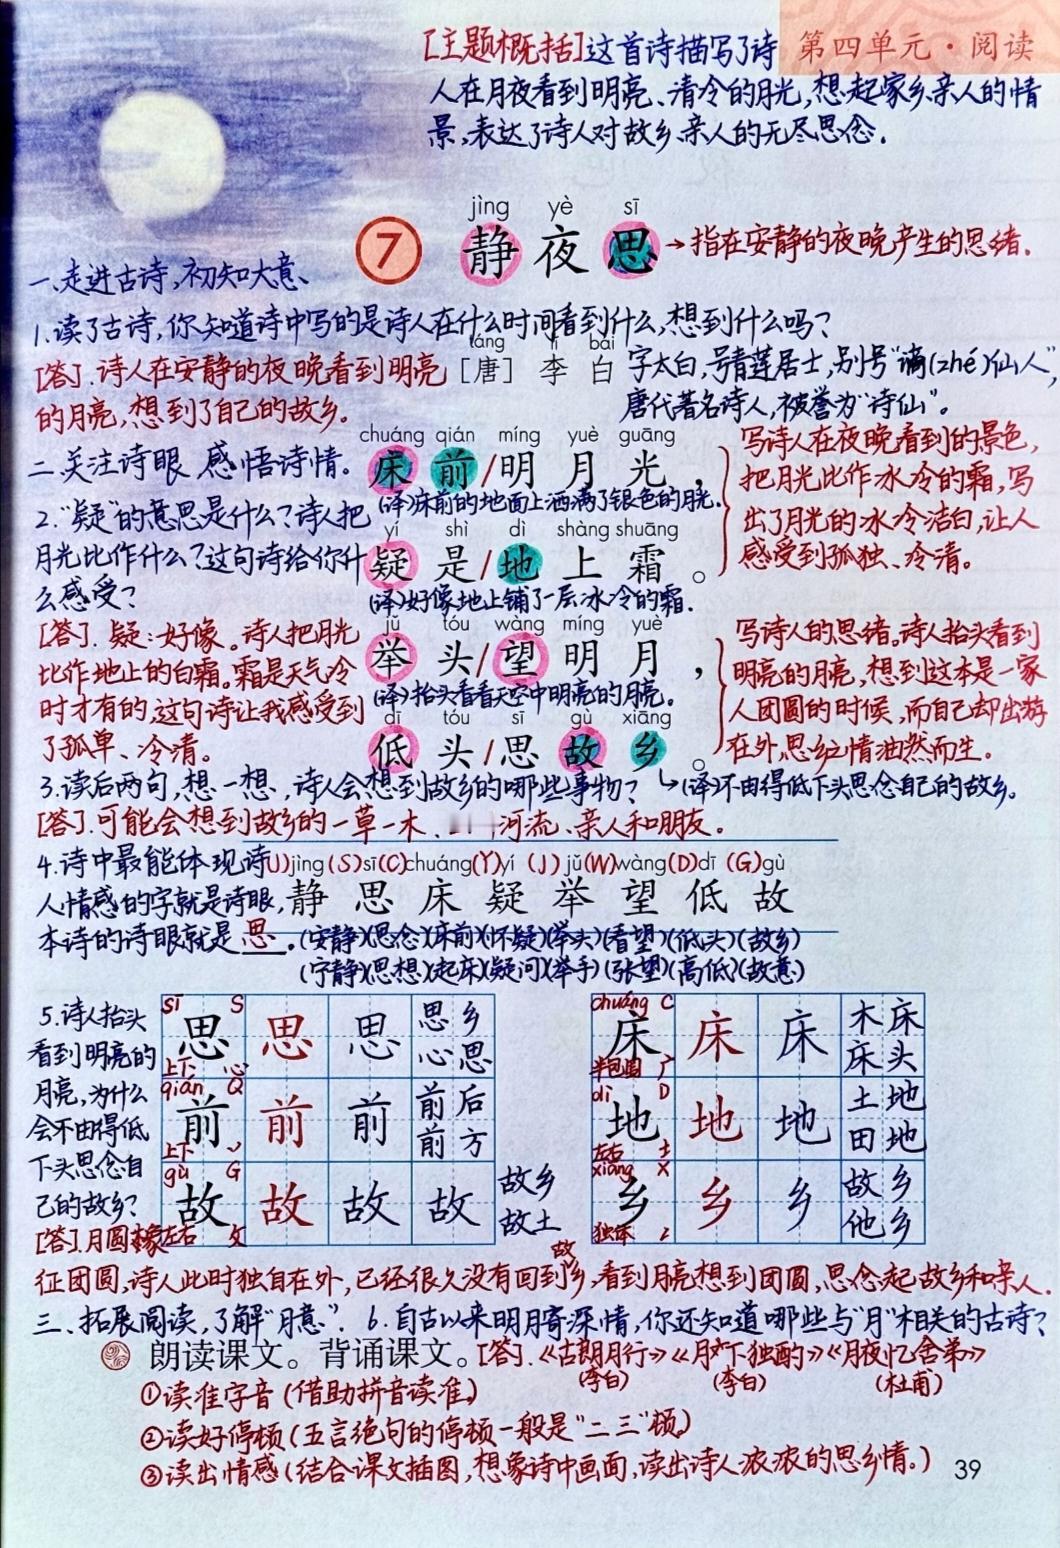 [主题概括]这首诗描写了诗
第四单元·阅读
人在月夜看到明亮、清冷的月光,想起家乡亲人的情
景,表达了诗人对故乡亲人的无尽思念.
jìng yè sī
7 静夜思
→指在安静的夜晚产生的思绪.
一、走进古诗,初知大意、
1.读了古诗,你知道诗中写的是诗人在什么时间看到什么,想到什么吗?
[答].诗人在安静的夜晚看到明亮
的月亮,想到了自己的故乡。
táng lǐ bái
[唐] 李白
字太白,号青莲居士,别号"谪(zhé)仙人",
唐代著名诗人,被誉为"诗仙"。
二.关注诗眼 感悟诗情.
2."疑"的意思是什么?诗人把
月光比作什么?这句诗给你什
么感受?
[答].疑:好像。诗人把月光
比作地上的白霜。霜是天气冷
时才有的,这句诗让我感受到
了孤单、冷清。
chuáng qián míng yuè guāng
床前/明月光,
(译)床前的地面上洒满了银色的月光.
yí shì dì shàng shuāng
疑是/地上霜。
(译)好像地上铺了一层冰冷的霜.
jǔ tóu wàng míng yuè
举头/望明月,
(译)抬头看着天空中明亮的月亮。
dī tóu sī gù xiāng
低头/思故乡。
写诗人在夜晚看到的景色,
把月光比作冰冷的霜,写
出了月光的冰冷洁白,让人
感受到孤独、冷清。
写诗人的思绪。诗人抬头看到
明亮的月亮,想到这本是一家
人团圆的时候,而自己却出游
在外,思乡之情油然而生.
(译)不由得低下头思念自己的故乡。
3.读后两句,想一想,诗人会想到故乡的哪些事物?
[答].可能会想到故乡的一草一木、河流、亲人和朋友。
4.诗中最能体现诗
人情感的字就是诗眼,
本诗的诗眼就是思.
(J)jìng (S)sī (C)chuáng (Y)yí (J)jǔ (W)wàng (D)dī (G)gù
静 思 床 疑 举 望 低 故
(安静)(思念)(床前)(怀疑)(举头)(看望)(低头)(故乡)
(宁静)(思想)(起床)(疑问)(举手)(张望)(高低)(故意)
5.诗人抬头
看到明亮的
月亮,为什么
会不由得低
下头思念自
己的故乡?
sī S
思 思 思 思乡
上下 心 心思
qián Q
前 前 前 前后
上下 前方
gù G
故 故 故 故 故乡
左右 攵 故土
chuáng C
床 床 床 木床
半包围 广 床头
dì D
地 地 地 土地
左右 土 田地
xiāng X
乡 乡 乡 故乡
独体 他乡
[答].月圆象
征团圆,诗人此时独自在外,已经很久没有回到故乡,看到月亮想到团圆,思念起故乡和亲人.
三、拓展阅读,了解"月意". 6.自古以来明月寄深情,你还知道哪些与"月"相关的古诗?
朗读课文。背诵课文。
[答].《古朗月行》《月下独酌》《月夜忆舍弟》
(李白) (李白) (杜甫)
①读准字音(借助拼音读准)
②读好停顿(五言绝句的停顿一般是"二三"顿)
③读出情感(结合课文插图,想象诗中画面,读出诗人浓浓的思乡情。)
39